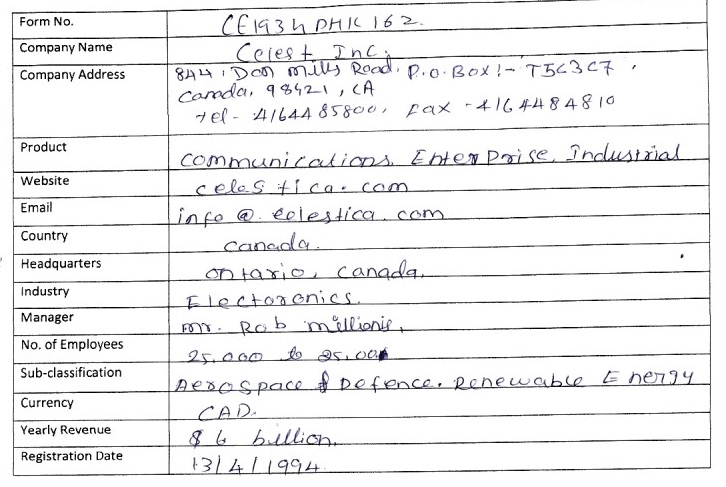 Form No. CE1934DHK162.
Company Name Celest Inc.
Company Address 844, Don mills Road, P.O.BOX:- T5C3C7,
Canada, 98421, CA
Tel- 4164485800, Fax -4164484810
Product Communications, Enterprise, Industrial
Website celestica.com
Email info@celestica.com
Country Canada.
Headquarters Ontario, Canada,
Industry Electoronics.
Manager mr. Rob millionis,
No. of Employees 25,000 to
Sub-classification Aerospace & Defence. Renewable Energy
Currency CAD.
Yearly Revenue $ 6 billion,
Registration Date 13/4/1994